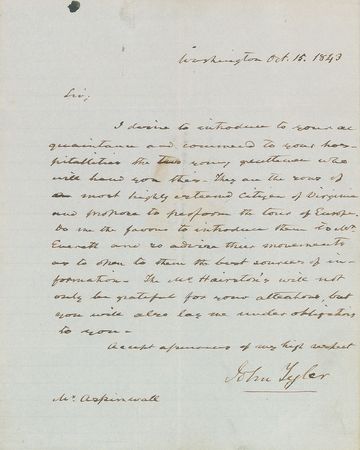 Washington Oct. 15. 1843
Sir;
I desire to introduce to your ac
quaintance and commend to your hos-
pitalities the two young gentlemen who
will hand you this. They are the sons of
a most highly esteemed citizen of Virginia
and propose to perform the tour of Europe.
Do me the favour to introduce them to Mr.
Everett and so advise their movements
as to open to them the best sources of in-
formation. The Mr. Hairston's will not
only be grateful for your attentions, but
you will also lay me under obligations
to you-
Accept assurances of my high respect
John Tyler
Mr. Aspinwall